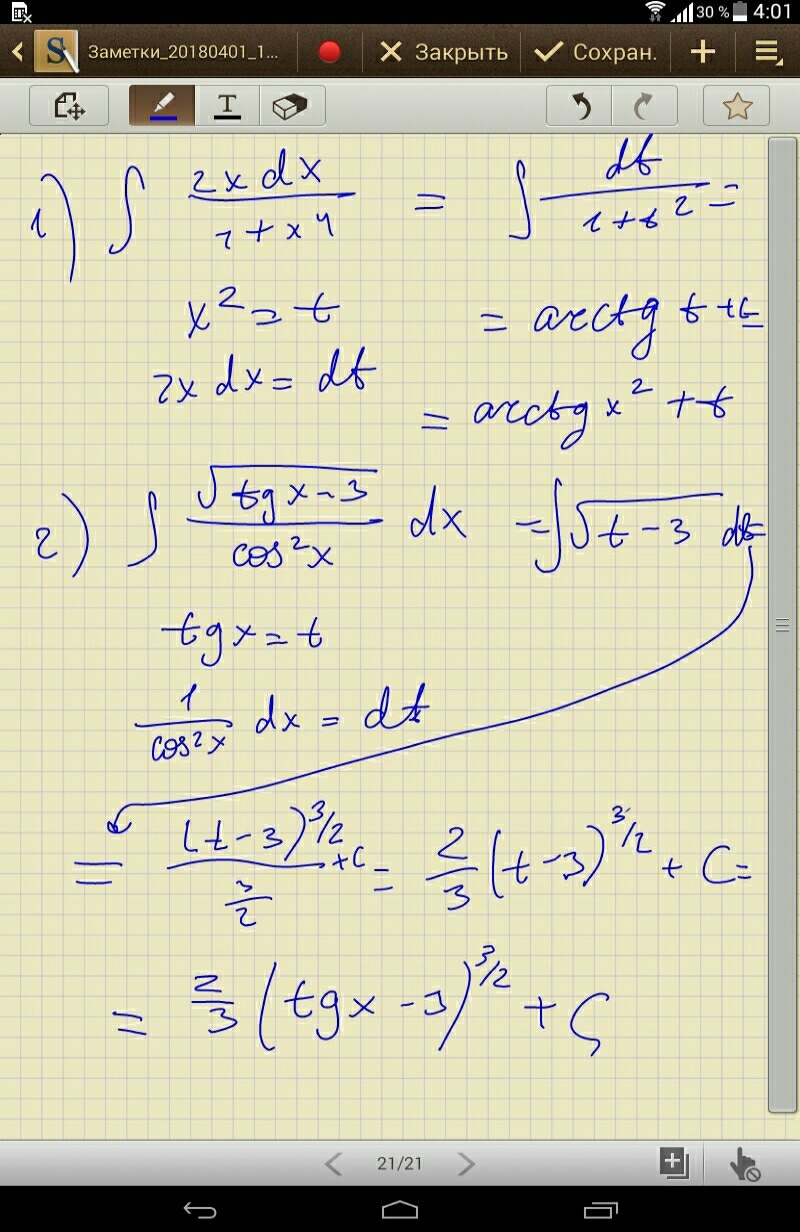 30 % 4:01
Заметки_20180401_1... Закрыть Сохран.
T
1) ∫ 2x dx / 1 + x⁴ = ∫ dt / 1 + t² =
x² = t = arctg t + C =
2x dx = dt = arctg x² + t
2) ∫ √(tg x - 3) / cos²x dx = ∫ √(t - 3) dt =
tg x = t
1 / cos²x dx = dt
= (t - 3)^3/2 / 3/2 + C = 2/3 (t - 3)^3/2 + C =
= 2/3 (tg x - 3)^3/2 + C
21/21